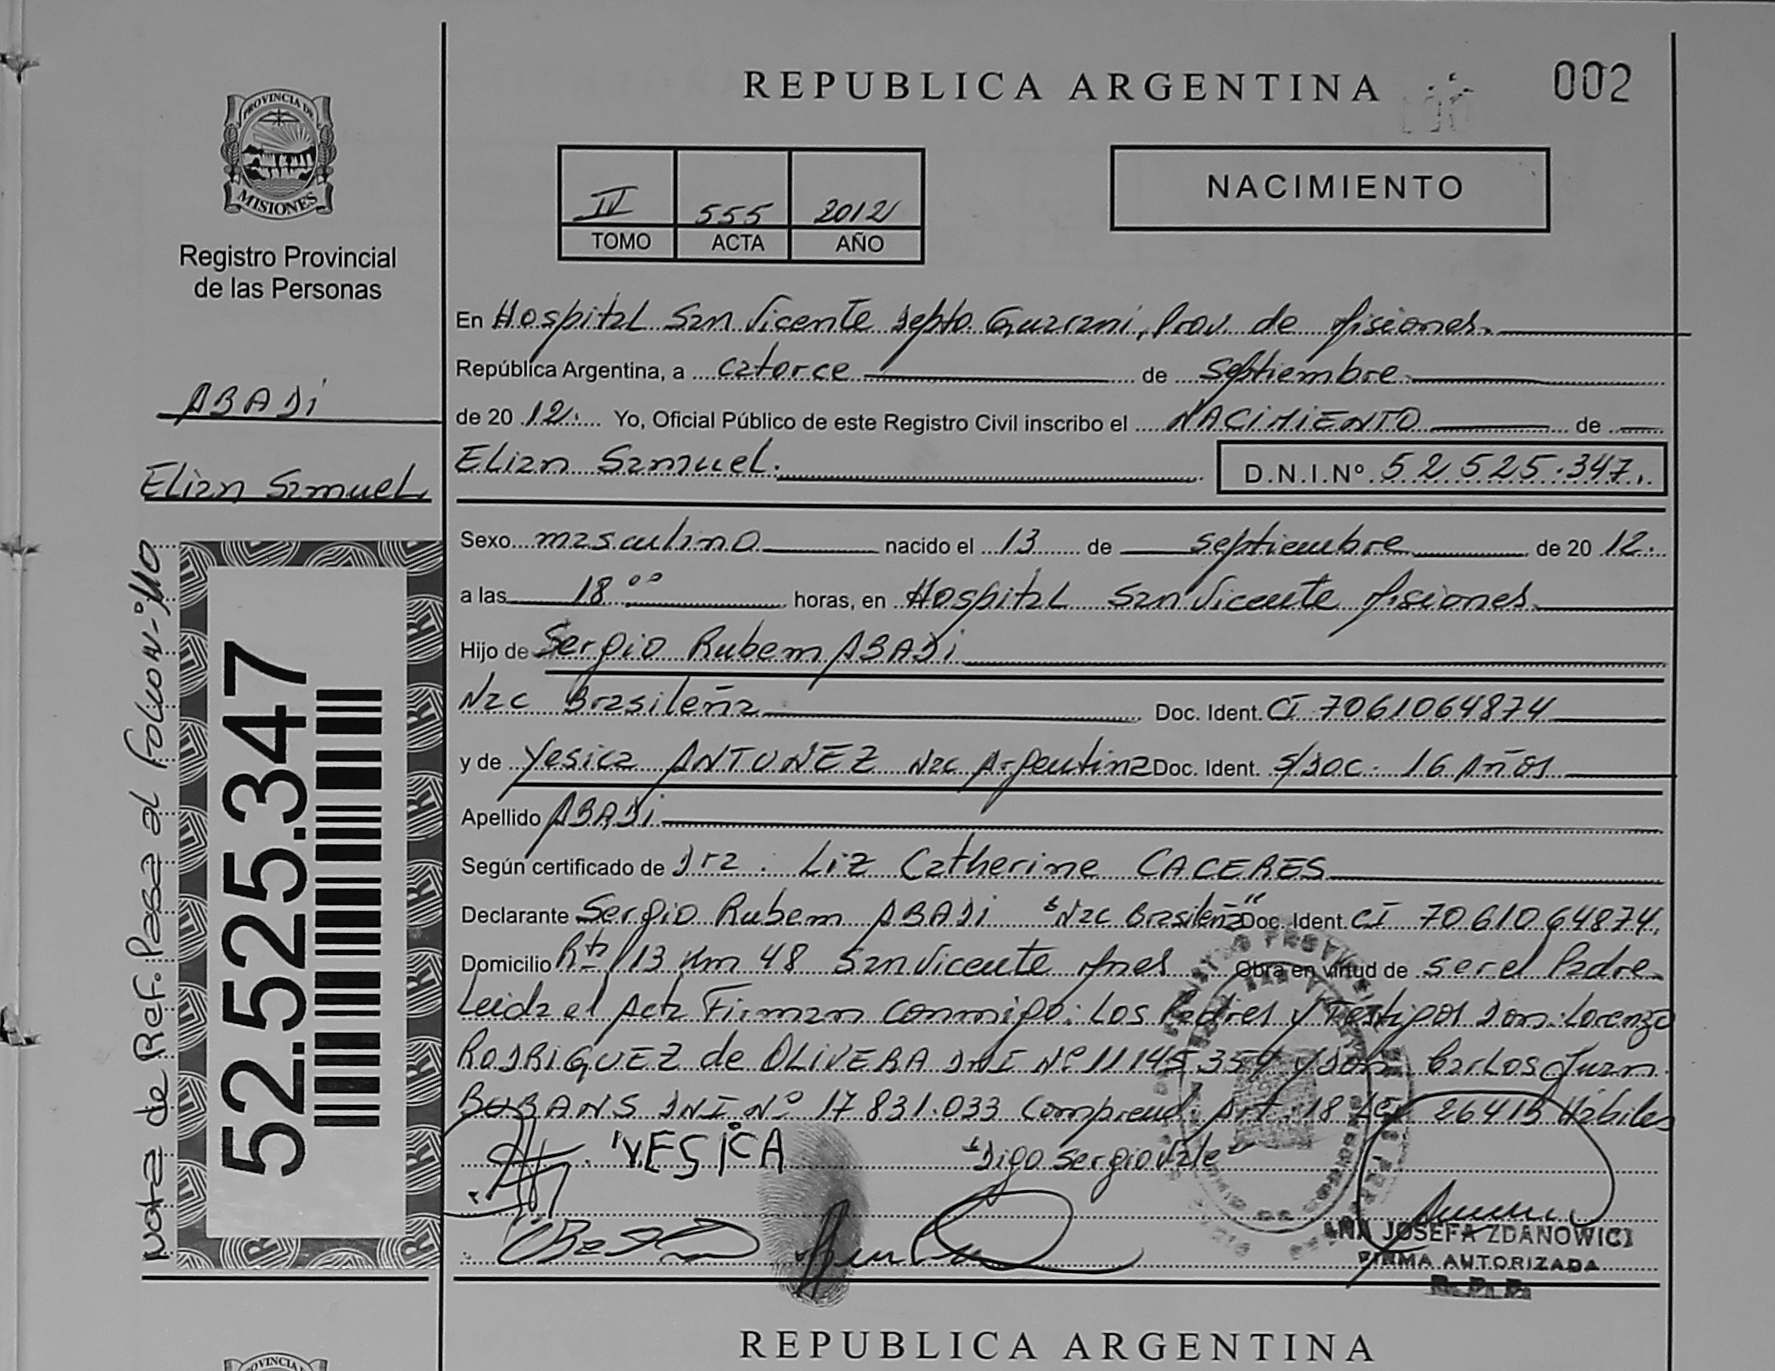 REPUBLICA ARGENTINA
002
PROVINCIA DE
MISIONES
Registro Provincial
de las Personas
II 555 2012
TOMO ACTA AÑO
NACIMIENTO
ABADi
Elian Samuel
Nota de Ref. Pasa al Folio
52.525.347
En Hospital San Vicente Depto Guarani, Prov. de Misiones.
República Argentina, a catorce de septiembre
de 20 12. Yo, Oficial Público de este Registro Civil inscribo el NACIMIENTO de
Elian Samuel. D.N.I.Nº 52.525.347.
Sexo masculino nacido el 13 de septiembre de 20 12.
a las 18⁰⁰ horas, en Hospital San Vicente Misiones
Hijo de Sergio Rubem ABADi
Nac Brasileña Doc. Ident. CI 7061064874
y de Yesica ANTUNEZ Nac Argentina Doc. Ident. S/DOC. 16 Años
Apellido ABADi
Según certificado de Dra. Liz Catherine CACERES
Declarante Sergio Rubem ABADi "Nac Brasileña" Doc. Ident. CI 7061064874,
Domicilio Rta 13 Km 48 San Vicente Mnes Obra en virtud de ser el Padre
Leida el Acta Firman conmigo: Los Padres y Testigos Don: Lorenzo
RODRiGUEZ de OLIVERA DNI Nº 11145.354 y Don Carlos Juan
BUBANS DNI Nº 17831.033 Comprend. Art. 18 Ley 26413 Hábiles
YESiCA "Digo Sergio Vale"
ANA JOSEFA ZDANOWICZ
FIRMA AUTORIZADA
R.P.P.
REPUBLICA ARGENTINA
PROVINCIA